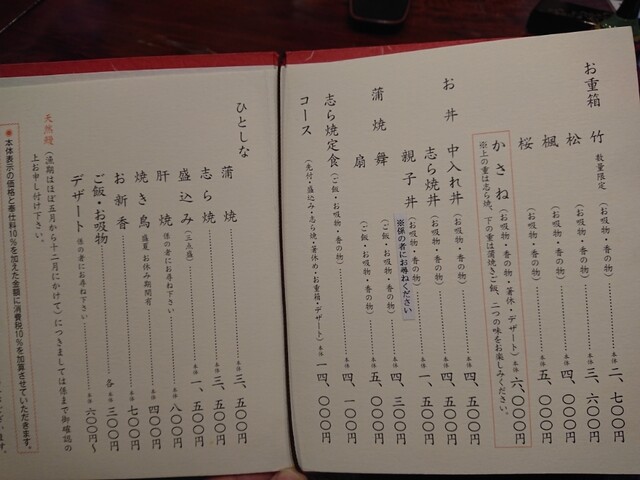 お重箱 竹 数量限定 (お吸物・香の物) 本体 二、七〇〇円
松 (お吸物・香の物) 本体 三、六〇〇円
楓 (お吸物・香の物) 本体 四、〇〇〇円
桜 (お吸物・香の物) 本体 五、〇〇〇円
かさね (お吸物・香の物・箸休・デザート) 本体 六、〇〇〇円
※上の重は志ら焼、下の重は蒲焼きご飯、二つの味をお楽しみください。
お丼 中入れ丼 (お吸物・香の物) 本体 四、五〇〇円
志ら焼丼 (お吸物・香の物) 本体 四、五〇〇円
親子丼 (お吸物・香の物) ※係の者にお尋ねください 本体 一、五〇〇円
蒲焼 舞 (ご飯・お吸物・香の物) 本体 四、三〇〇円
扇 (ご飯・お吸物・香の物) 本体 五、〇〇〇円
志ら焼定食 (ご飯・お吸物・香の物) 本体 四、一〇〇円
コース (先付・盛込み・志ら焼・箸休め・お重箱・デザート) 本体 一四、〇〇〇円
ひとしな 蒲焼 本体 三、五〇〇円
志ら焼 本体 三、五〇〇円
盛込み (三点盛) 本体 一、五〇〇円
肝焼 係の者にお尋ね下さい 本体 八〇〇円
焼き鳥 盛夏 お休み期間有 本体 四〇〇円
お新香 本体 七〇〇円
ご飯・お吸物 各 本体 三〇〇円
デザート 係の者にお尋ね下さい 本体 六〇〇円〜
天然鰻 (漁期はほぼ五月から十二月にかけて) につきましては係まで御確認の
上お申し付け下さい。
※本体表示の価格と奉仕料10%を加えた金額に消費税10%を加算させていただきます。